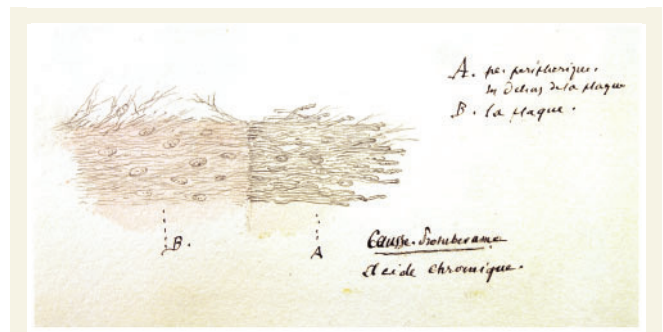 A. per periphérique.
en dehors de la plaque
B. la plaque.
B.
A
Causse. Protuberance
Acide chromique.